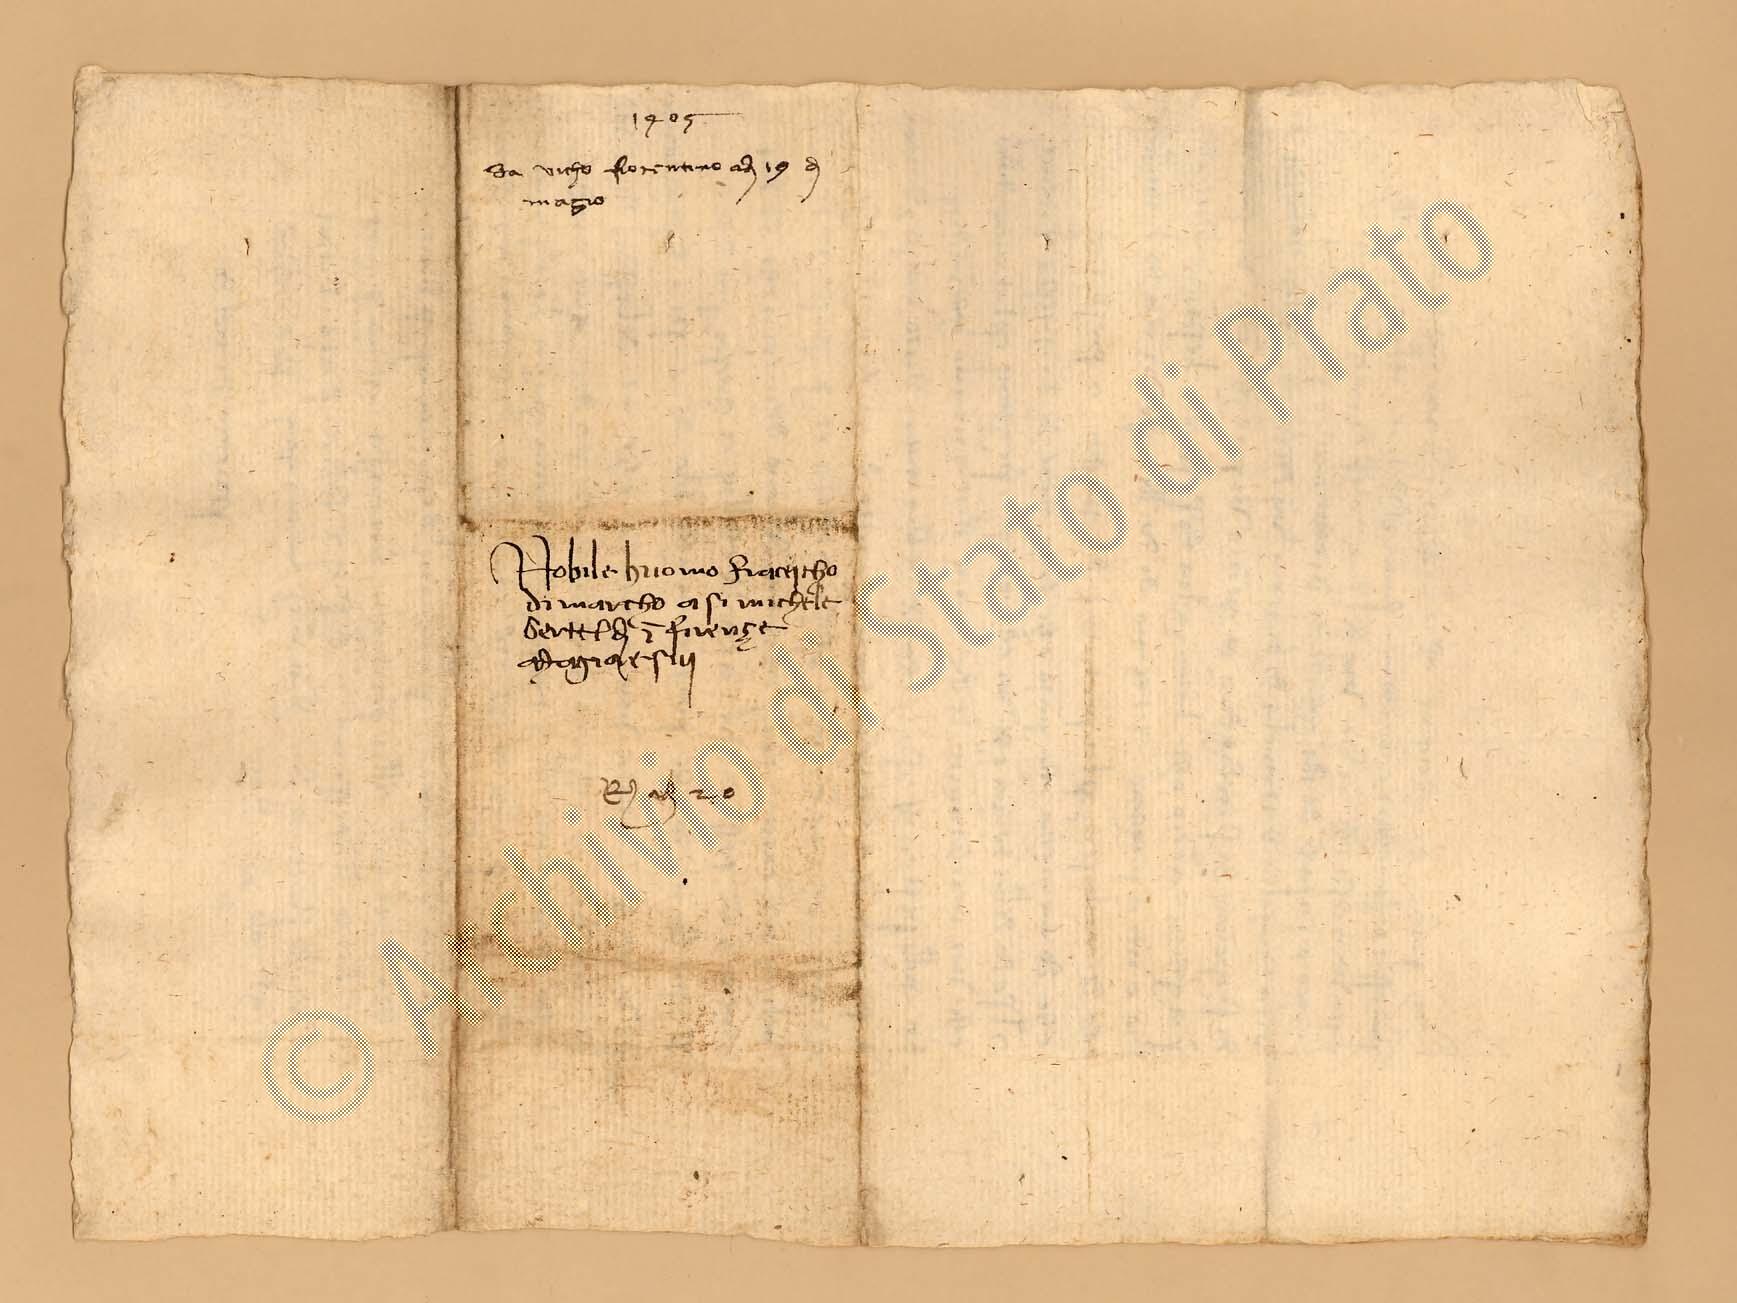 1405
Da vicho fiorentino adì 19 di
magio
Nobile huomo Franciescho
di marcho a si michele
berteldi i firenze
R adì 20
© Archivio di Stato di Prato